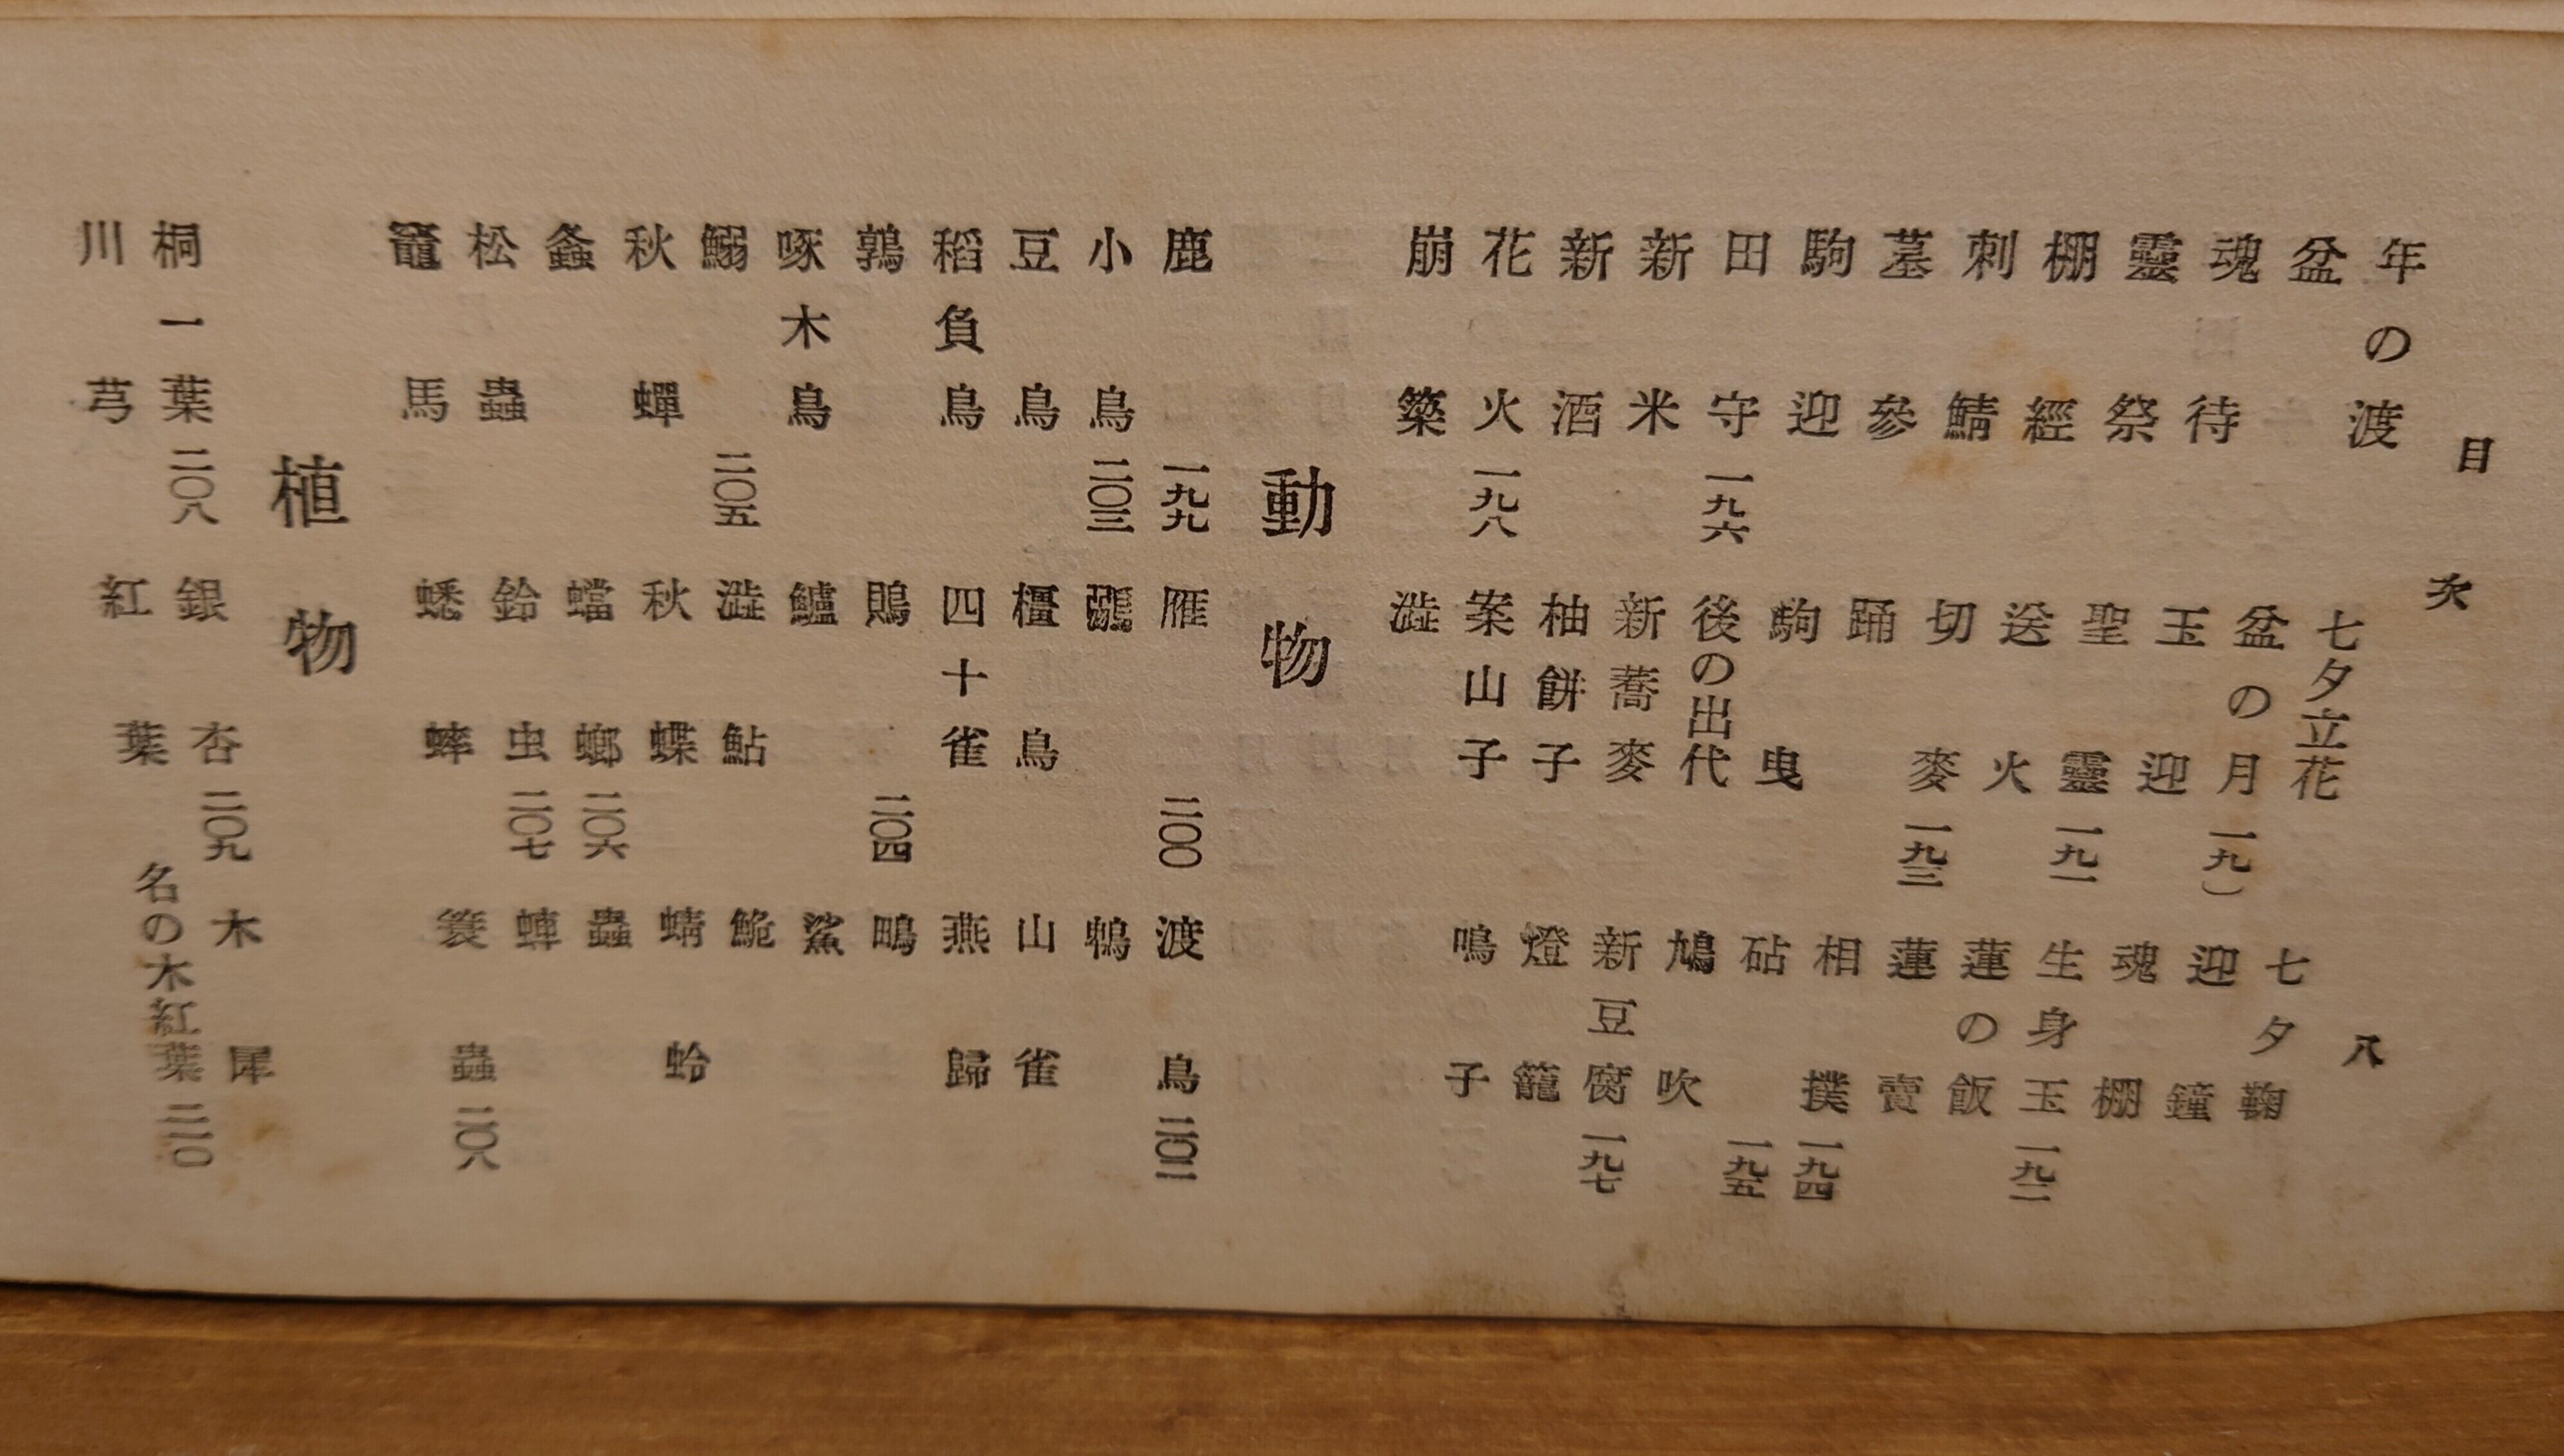 目次 八
年の渡 七夕立花 七夕鞠
盆 盆の月 一九〇 迎鐘
魂待 玉迎 魂棚
靈祭 聖靈 一九一 生身玉 一九二
棚經 送火 蓮の飯
刺鯖 切麥 一九三 蓮賣
墓參 踊 相撲 一九四
駒迎 駒曳 砧 一九五
田守 一九六 後の出代 鳩吹
新米 新蕎麥 新豆腐 一九七
新酒 柚餅子 燈籠
花火 一九八 案山子 鳴子
崩築 澁
動物
鹿 一九九 雁 二〇〇 渡鳥 二〇二
小鳥 二〇三 鵯
豆鳥 橿鳥 山雀
稻負鳥 四十雀 燕歸
鶉 鵙 二〇四 鴫
啄木鳥 鱸 鯊
鰯 二〇五 澁鮎 鮠
秋蟬 秋蝶 蜻蛉
螽 蟷螂 二〇六 蟲
松蟲 鈴虫 二〇七
竈馬 蟋蟀 簑蟲 二〇八
植物
桐一葉 二〇八 銀杏 二〇九 木犀
川芎 紅葉 名の木紅葉 二一〇